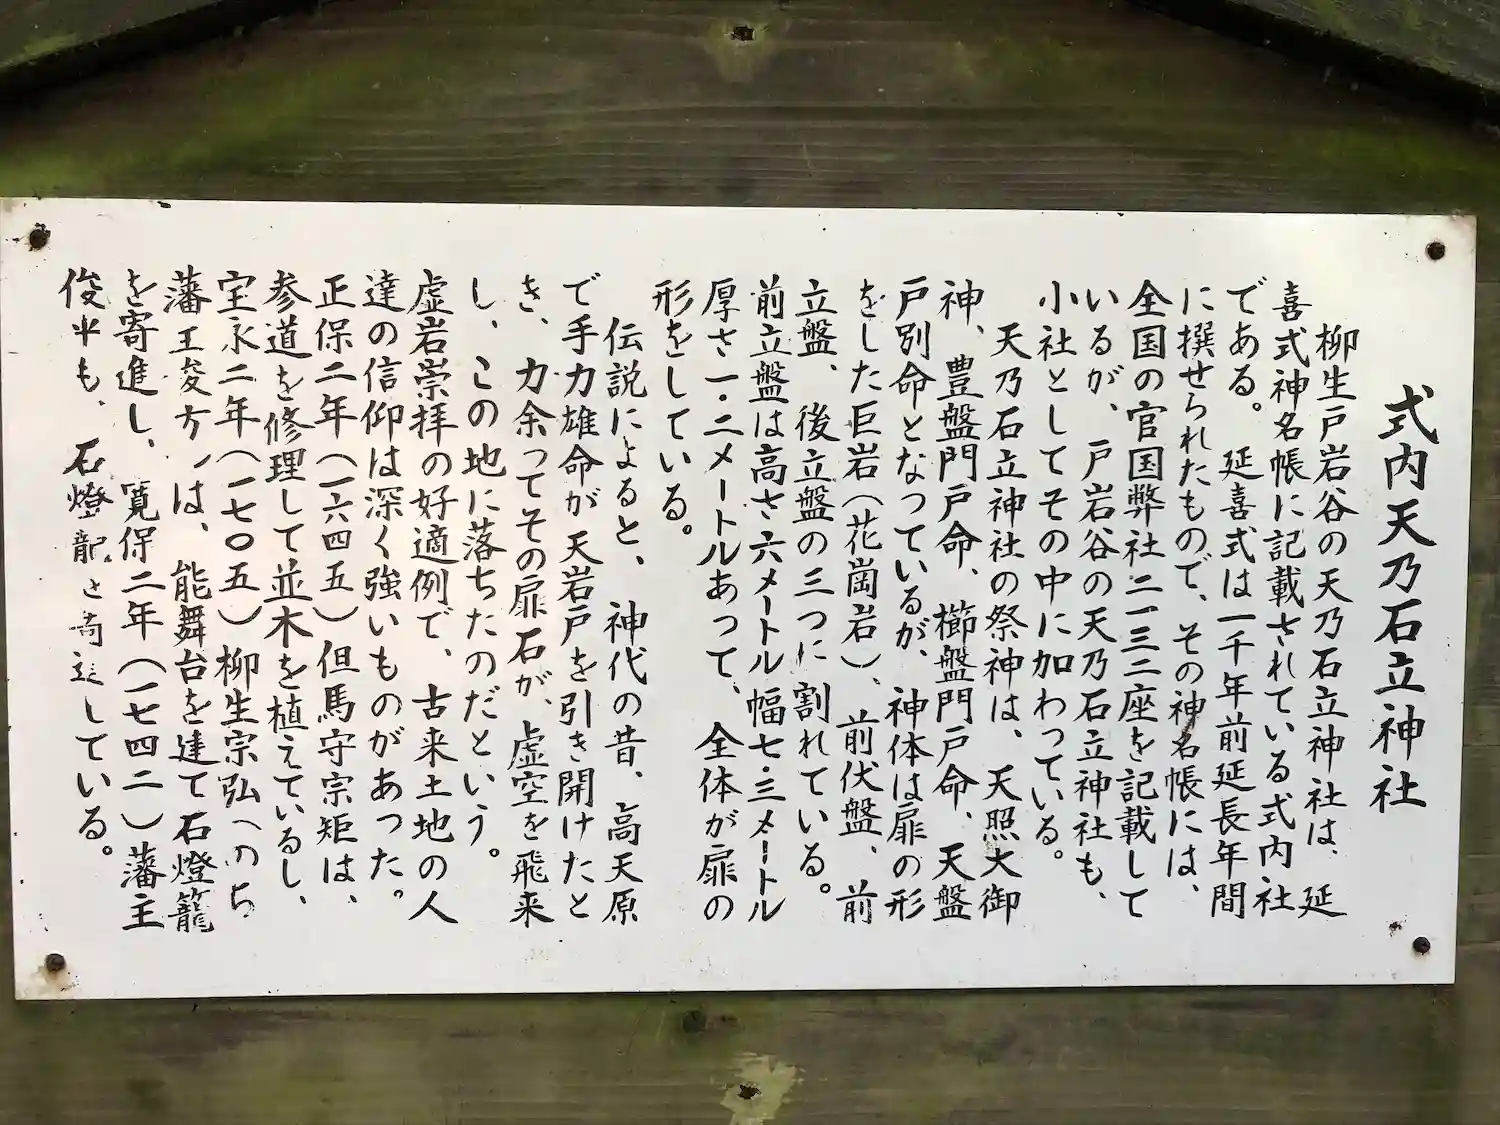 式内天乃石立神社
柳生戸岩谷の天乃石立神社は、延
喜式神名帳に記載されている式内社
である。延喜式は一千年前延長年間
に撰せられたもので、その神名帳には、
全国の官国弊社二一三二座を記載して
いるが、戸岩谷の天乃石立神社も、
小社としてその中に加わっている。
天乃石立神社の祭神は、天照大御
神、豊盤門戸命、櫛盤門戸命、天盤
戸別命となっているが、神体は扉の形
をした巨岩(花崗岩)、前伏盤、前
立盤、後立盤の三つに割れている。
前立盤は高さ六メートル幅七・三メートル
厚さ一・二メートルあって、全体が扉の
形をしている。
伝説によると、神代の昔、高天原
で手力雄命が天岩戸を引き開けたと
き、力余ってその扉石が、虚空を飛来
し、この地に落ちたのだという。
虚岩崇拝の好適例で、古来土地の人
達の信仰は深く強いものがあった。
正保二年(一六四五)但馬守宗矩は、
参道を修理して並木を植えているし、
宝永二年(一七〇五)柳生宗弘(のち
藩主俊方)は、能舞台を建て石燈籠
を寄進し、寛保二年(一七四二)藩主
俊平も、石燈籠を寄進している。